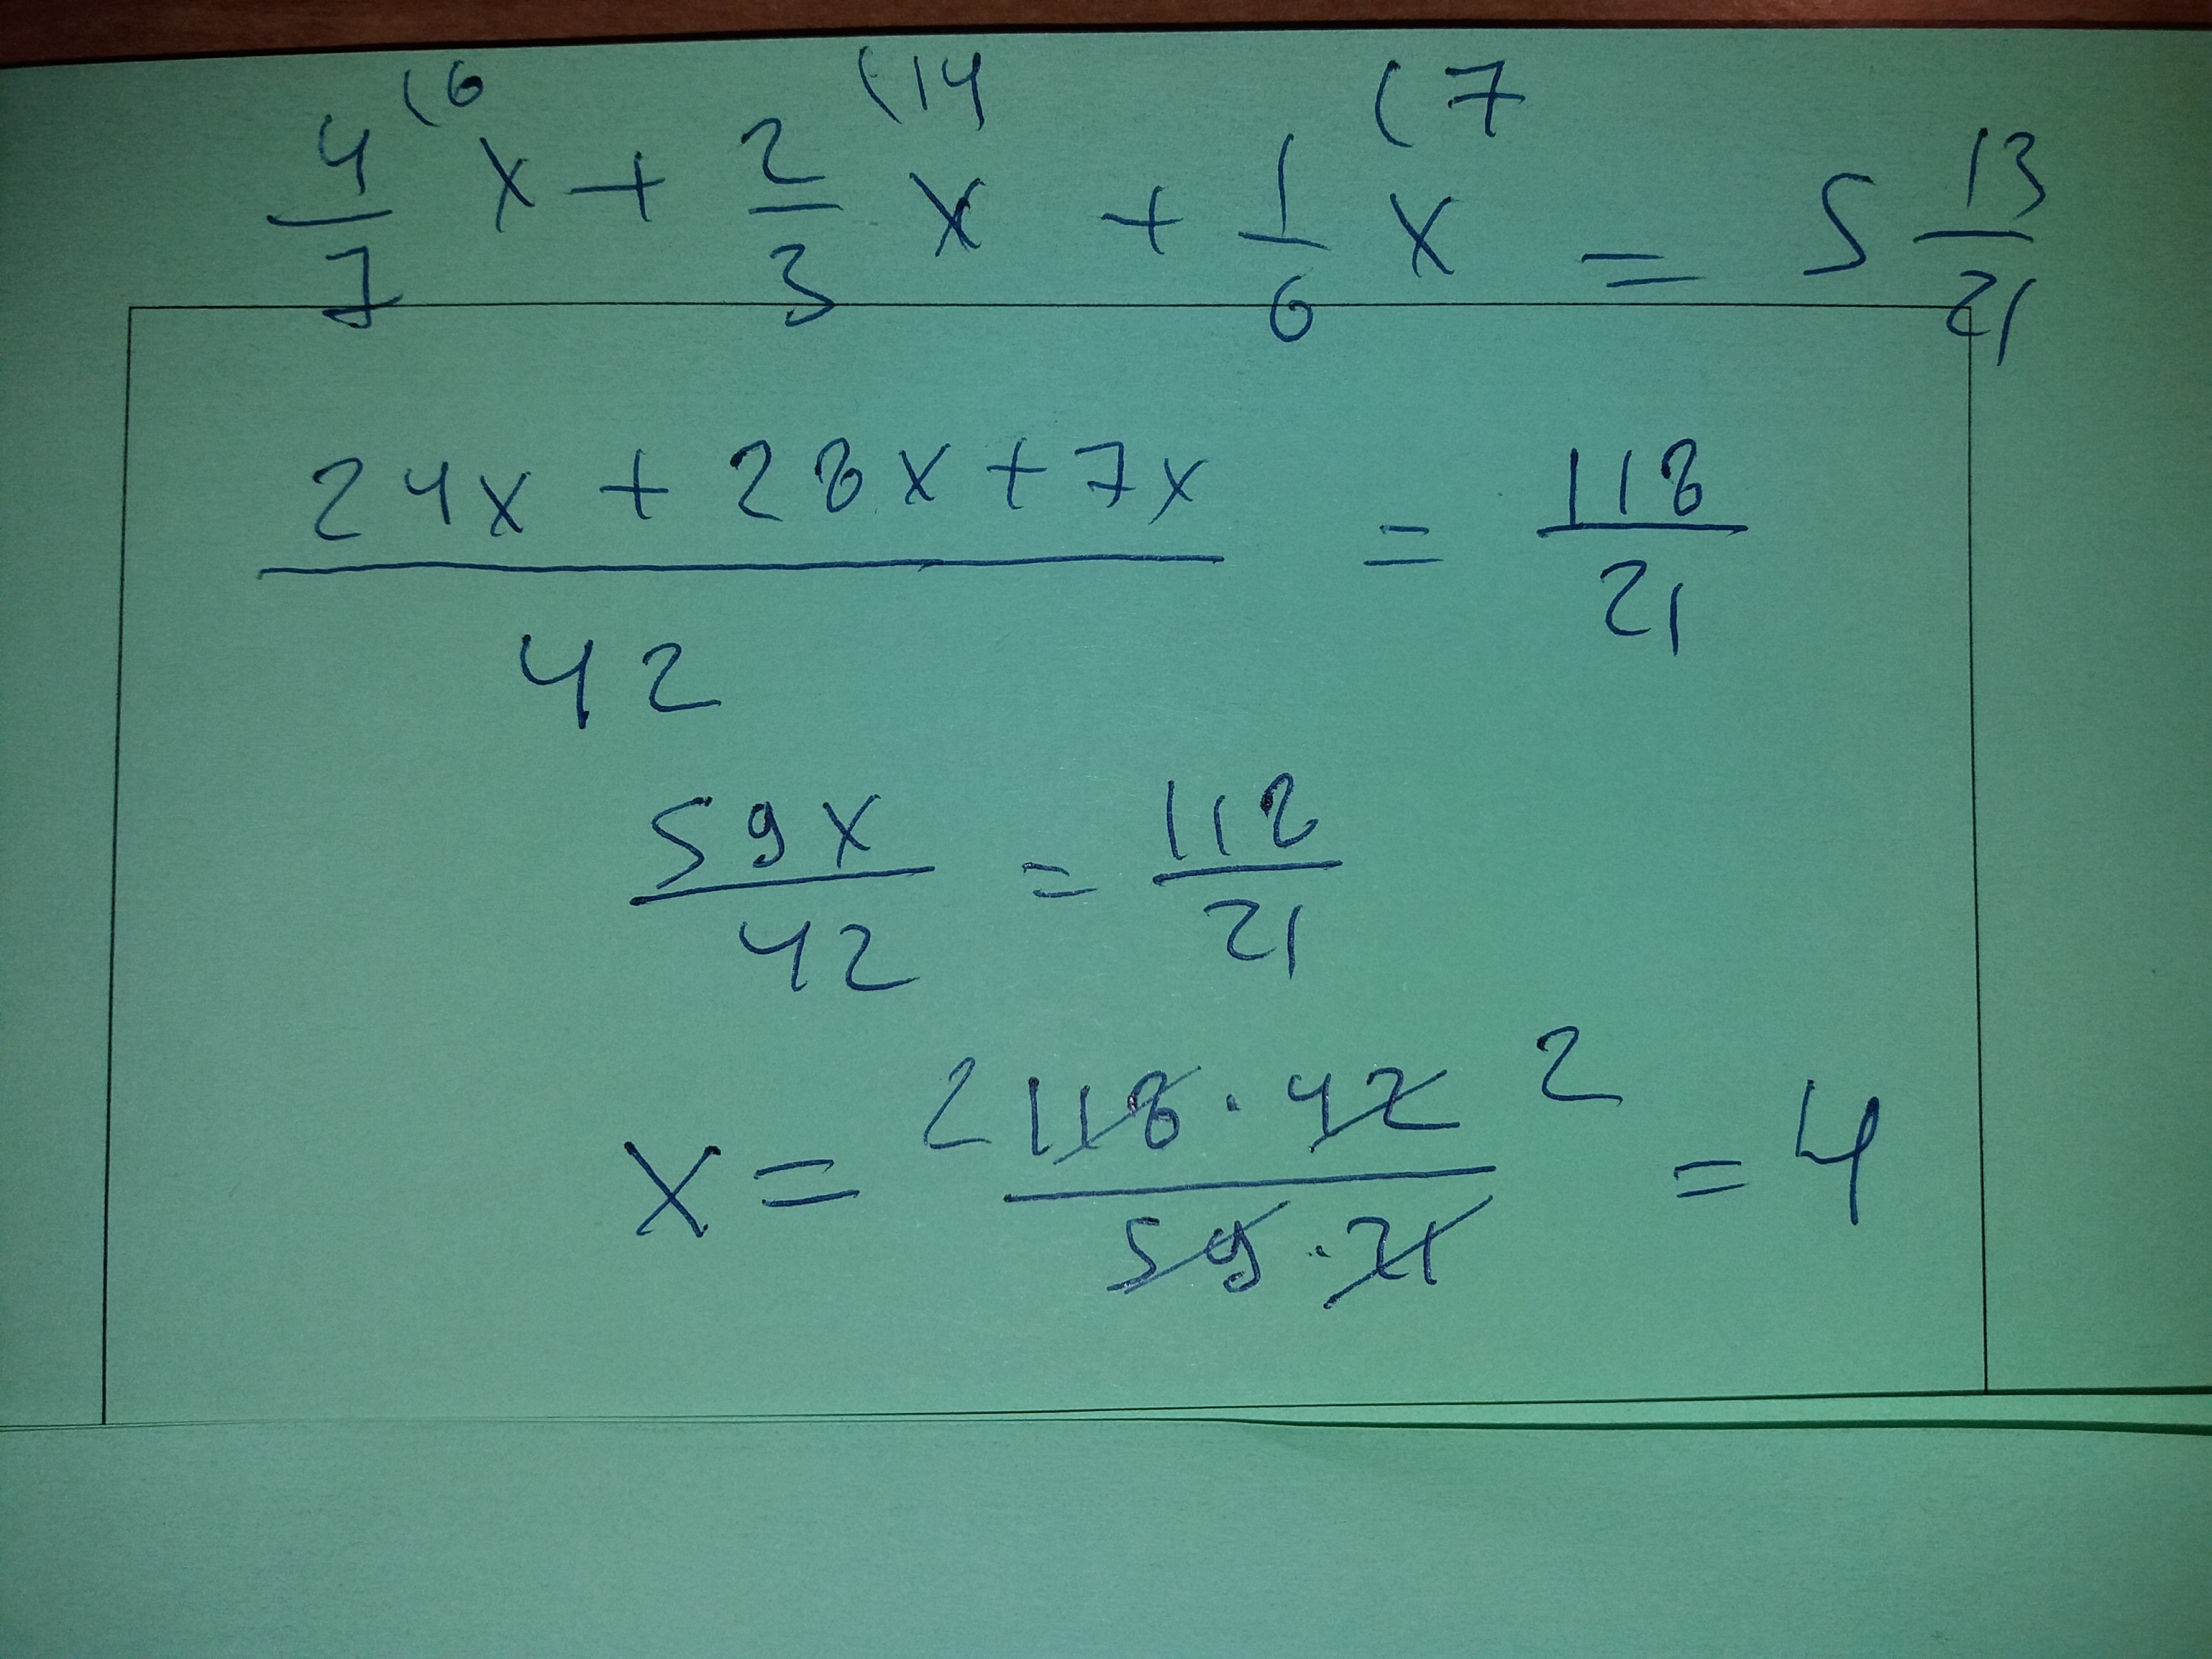 4/7 (6 x + 2/3 (14 x + 1/6 (7 x = 5 13/21
24x + 28x + 7x / 42 = 118/21
59x/42 = 118/21
x = 2 118 · 42 2 / 59 · 21 = 4